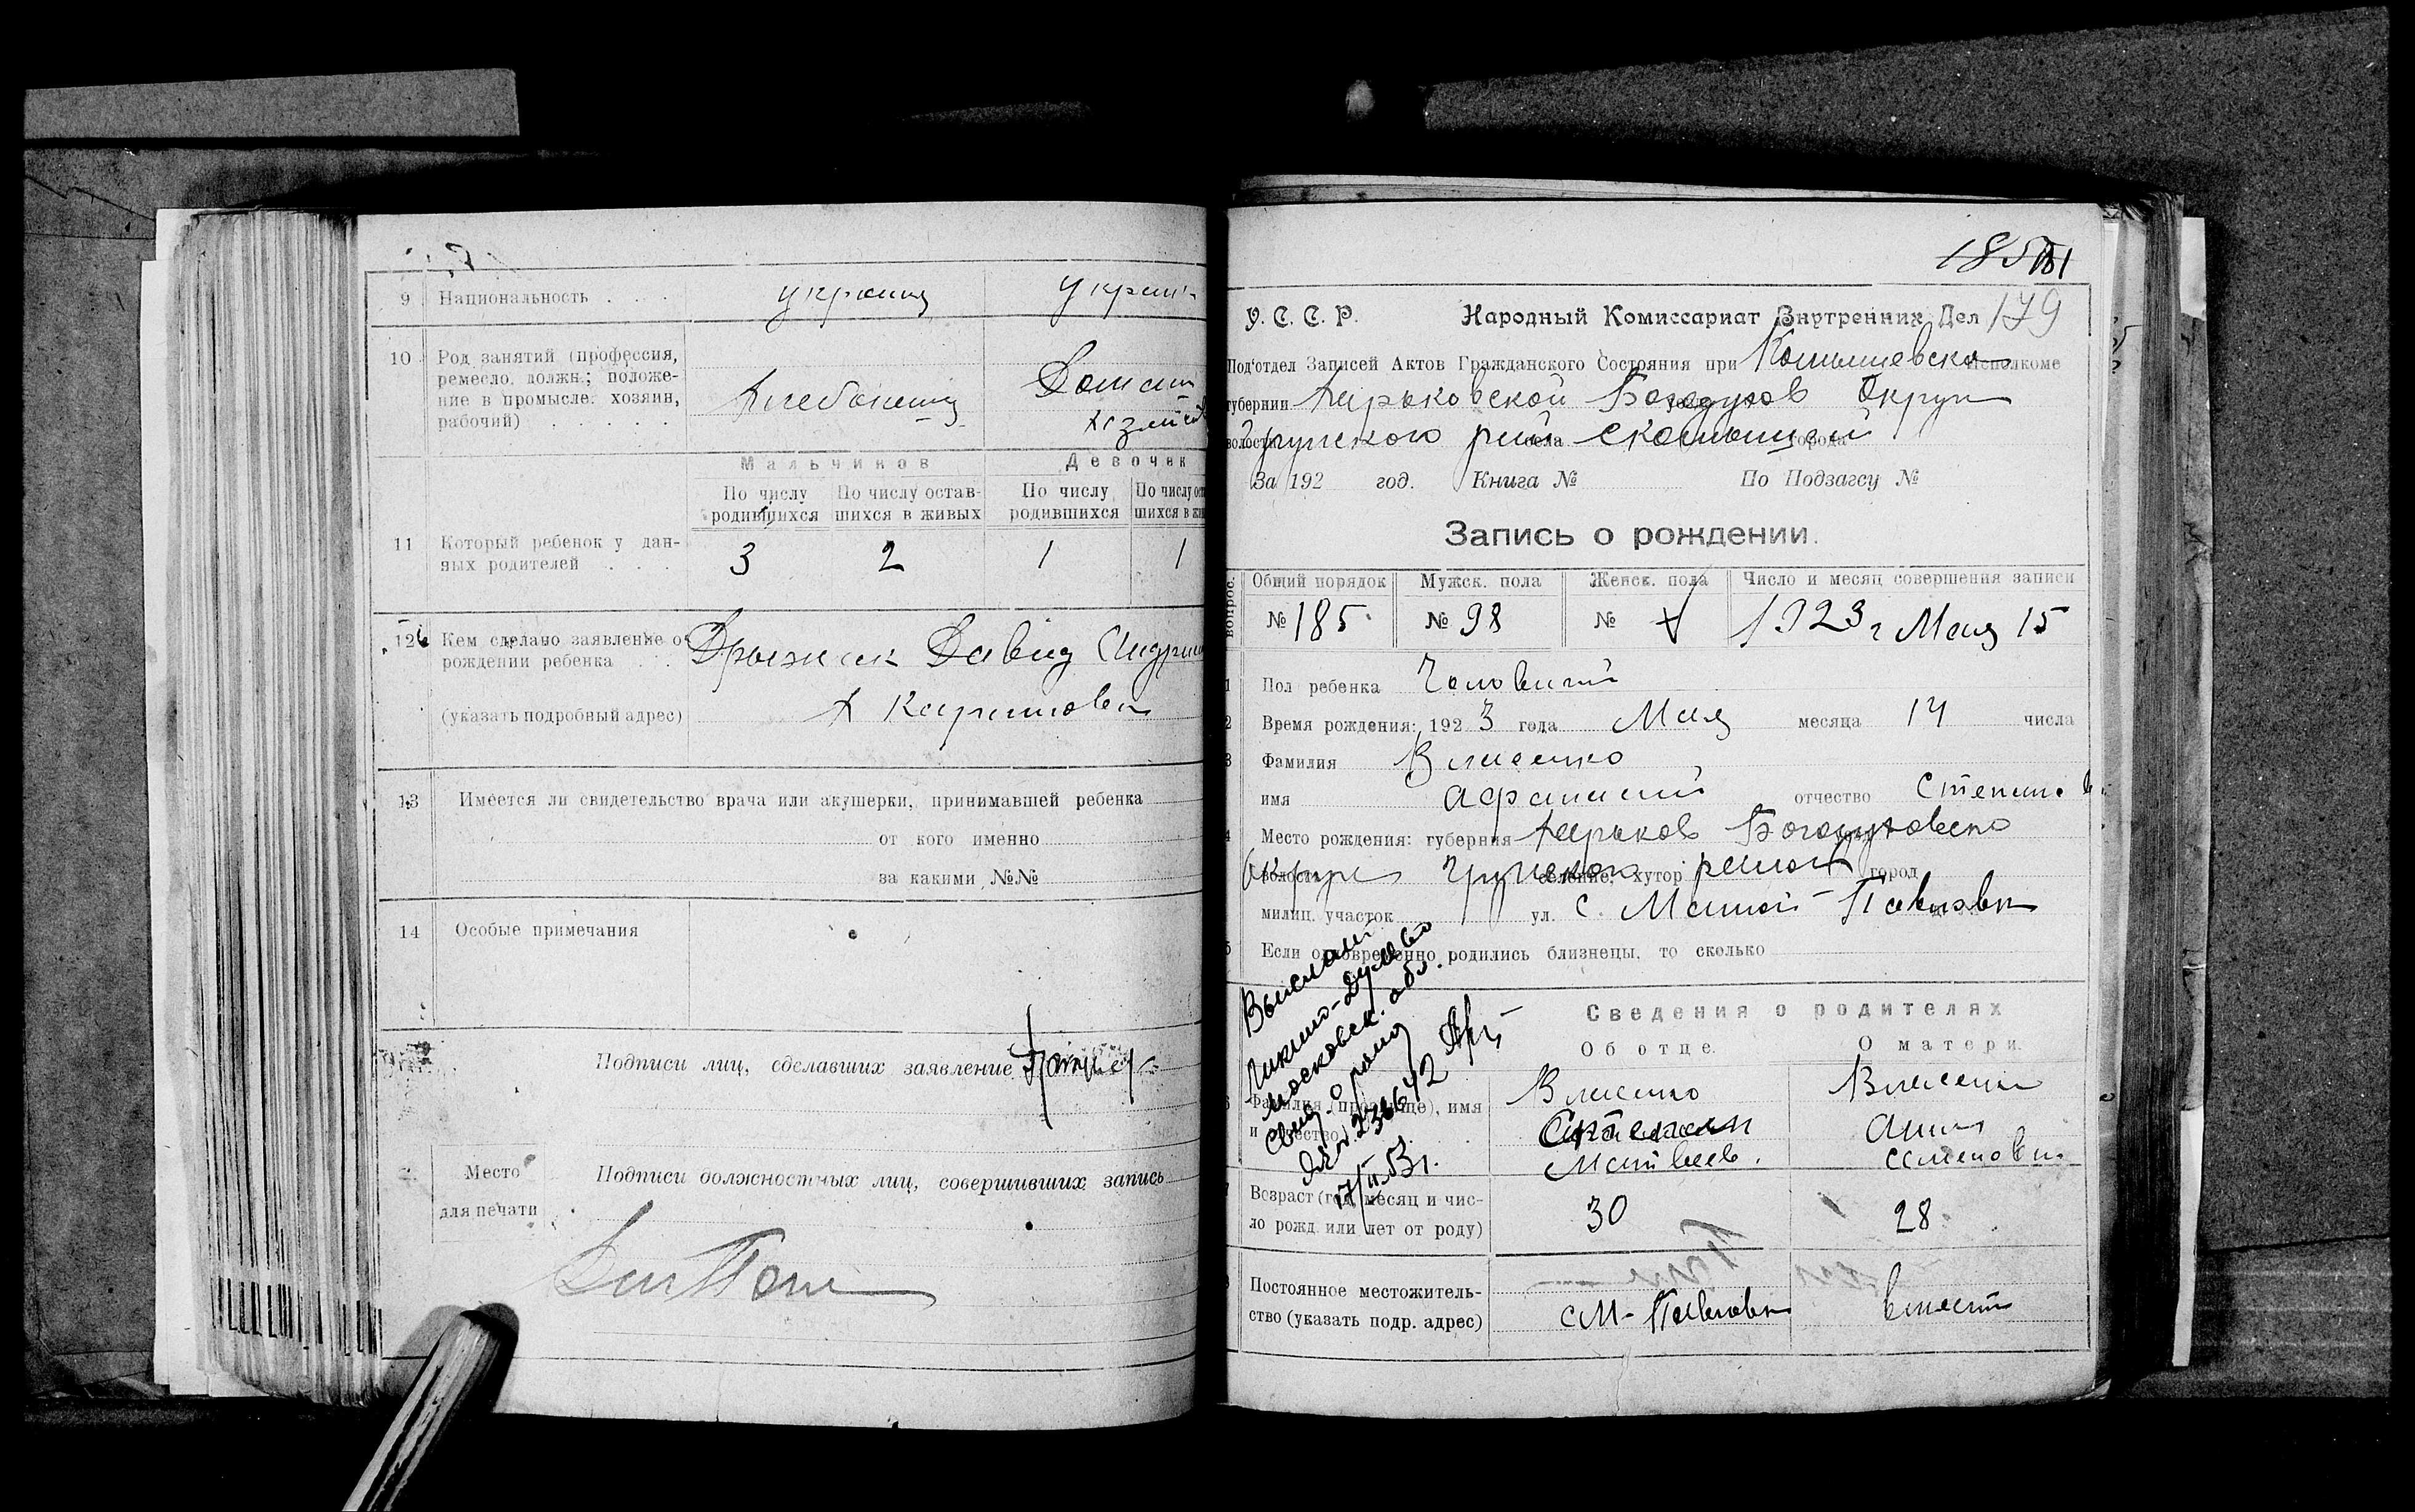 9 Национальность . . . украинц украин
10 Род занятий (профессия,
ремесло, должн.; положе-
ние в промысле: хозяин,
рабочий) . . . . . Хлебопашц Домашн
Мальчиков Девочек
По числу По числу остав- По числу По числу ост
родившихся шихся в живых родившихся шихся в жи
11 Который ребенок у дан-
ных родителей . . . 3 2 1 1
12 Кем сделано заявление о
рождении ребенка . . Дрыжак Давид
(указать подробный адрес) х
13 Имеется ли свидетельство врача или акушерки, принимавшей ребенка
от кого именно
за какими №№
14 Особые примечания
Подписи лиц, сделавших заявление
Место Подписи должностных лиц, совершивших запись
для печати
185 181
У. С. С. Р. Народный Комиссариат Внутренних Дел 179
Под'отдел Записей Актов Гражданского Состояния при Исполкоме
губернии Харьковской Богодухов Округи
волости села города
За 192 год. Книга № По Подзагсу №
Запись о рождении.
вопрос. Общий порядок Мужск. пола Женск. пола Число и месяц совершения записи
№ 185 № 98 № 1923 г Мая 15
1 Пол ребенка Чоловичий
2 Время рождения: 192 3 года Мая месяца 14 числа
3 Фамилия Власенко
имя Афанасий отчество Степанов
4 Место рождения: губерния Харьков Богодуховско
Округи волость селение, хутор район город
милиц. участок ул. с. Малой-Павловк
5 Если одновременно родились близнецы, то сколько
Выслан
Ликино-Дулево
московск. обл.
Свид. о рожд
236642
17/II.53г.
Сведения о родителях
Об отце. О матери.
6 Фамилия (прозвище), имя Власенко Власенко
и отчество Степан Анна
Матвеев. Семеновна
7 Возраст (год, месяц и чис-
ло рожд. или лет от роду) 30 28
8 Постоянное местожитель-
ство (указать подр. адрес) с М-Павловк вместе